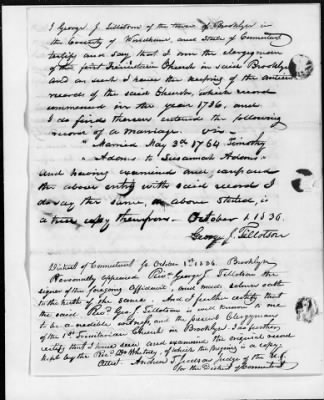 I George J. Tillotson of the town of Brooklyn in
the County of Windham, and State of Connecticut
certify and say, that I am the clergyman
of the first Trinitarian Church in said Brooklyn
and as such I have the keeping of the ancient
records of the said Church, which record
commenced in the year 1736, and
I do find thereon entered the following
record of a marriage. viz—
"Married May 3rd 1764 Timothy
Adams to Susannah Adams"
and having examined and compared
the above entry with said record I
do say the same, as above stated, is
a true copy therefrom. October 1. 1836.
George J. Tillotson
District of Connecticut ss. October 1st 1836. Brooklyn
Personally appeared Revd. George J. Tillotson the
signer of the foregoing Affidavit, and made solemn oath
to the truth of the same. And I further certify that
the said Revd. Geo. J. Tillotson is well known to me
to be a credible witness, and the present Clergyman
of the 1st Trinitarian Church in Brooklyn. I do further
certify that I have seen and examined the original record
kept by the Revd. Dr. Whitney, of which the foregoing is a copy.
Attest. Andrew T. Judson Judge of the U.S.
for the District of Connecticut